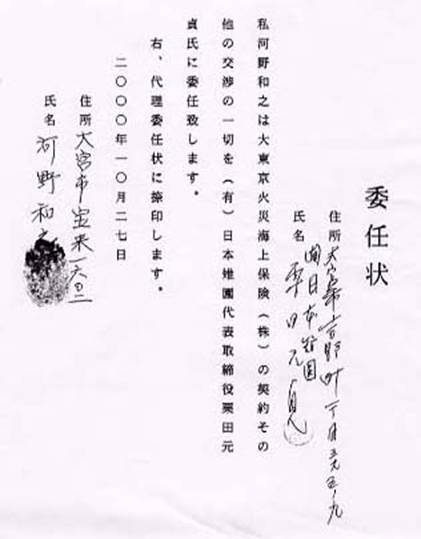 委任状
住所 大宮市吉野町
氏名 栗田元貞
私河野和之は大東京火災海上保険(株)の契約その
他の交渉の一切を(有)日本地圏代表取締役栗田元
貞氏に委任致します。
右、代理委任状に捺印します。
二〇〇〇年一〇月二七日
住所 大宮市宝来一六四二
氏名 河野和之